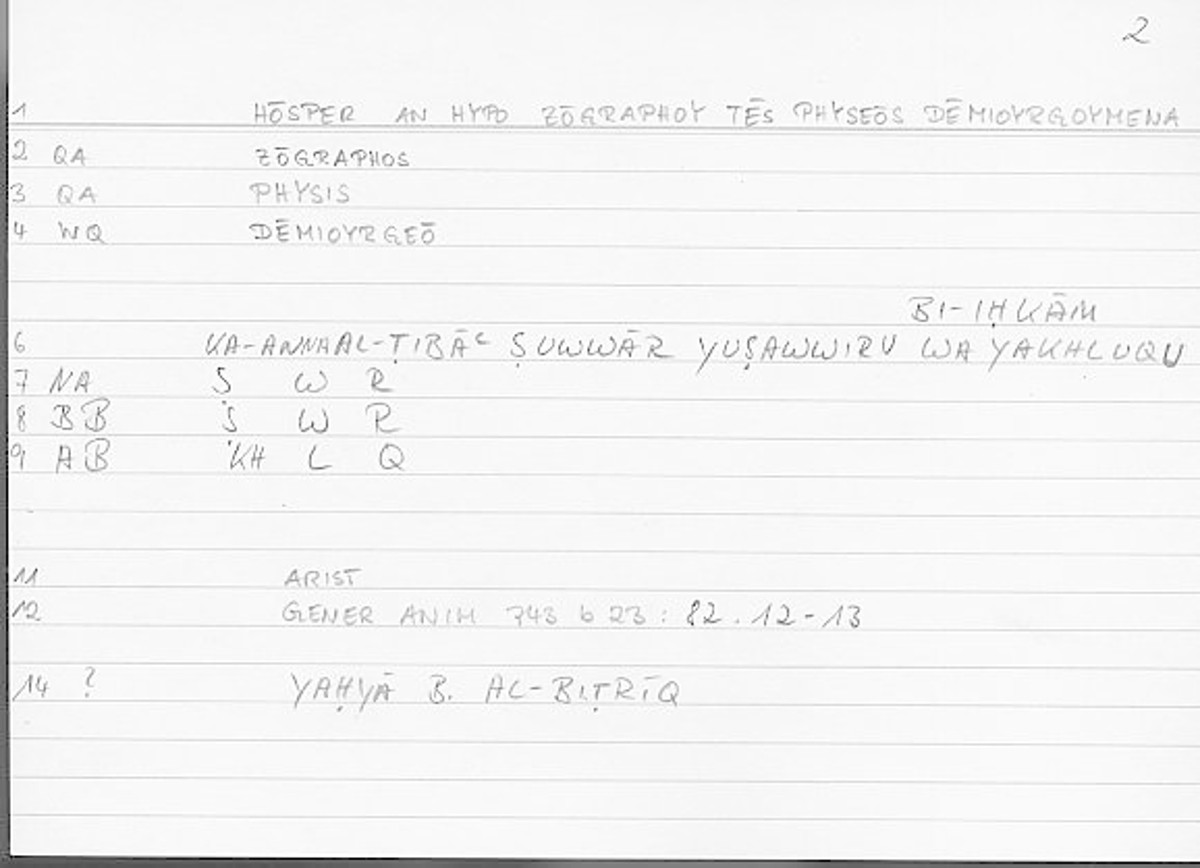 2
1 HŌSPER AN HYPO ZŌGRAPHOY TĒS PHYSEŌS DĒMIOYRGOYMENA
2 QA ZŌGRAPHOS
3 QA PHYSIS
4 WQ DĒMIOYRGEŌ
BI-IḤKĀM
6 KA-ANNAAL-ṬIBĀᶜ ṢUWWĀR YUṢAWWIRU WA YAKHLUQU
7 NA Ṣ W R
8 BB Ṣ W R
9 AB KH L Q
11 ARIST
12 GENER ANIM 743 b 23 : 82 . 12-13
14 ? YAḤYĀ B. AL-BIṬRĪQ